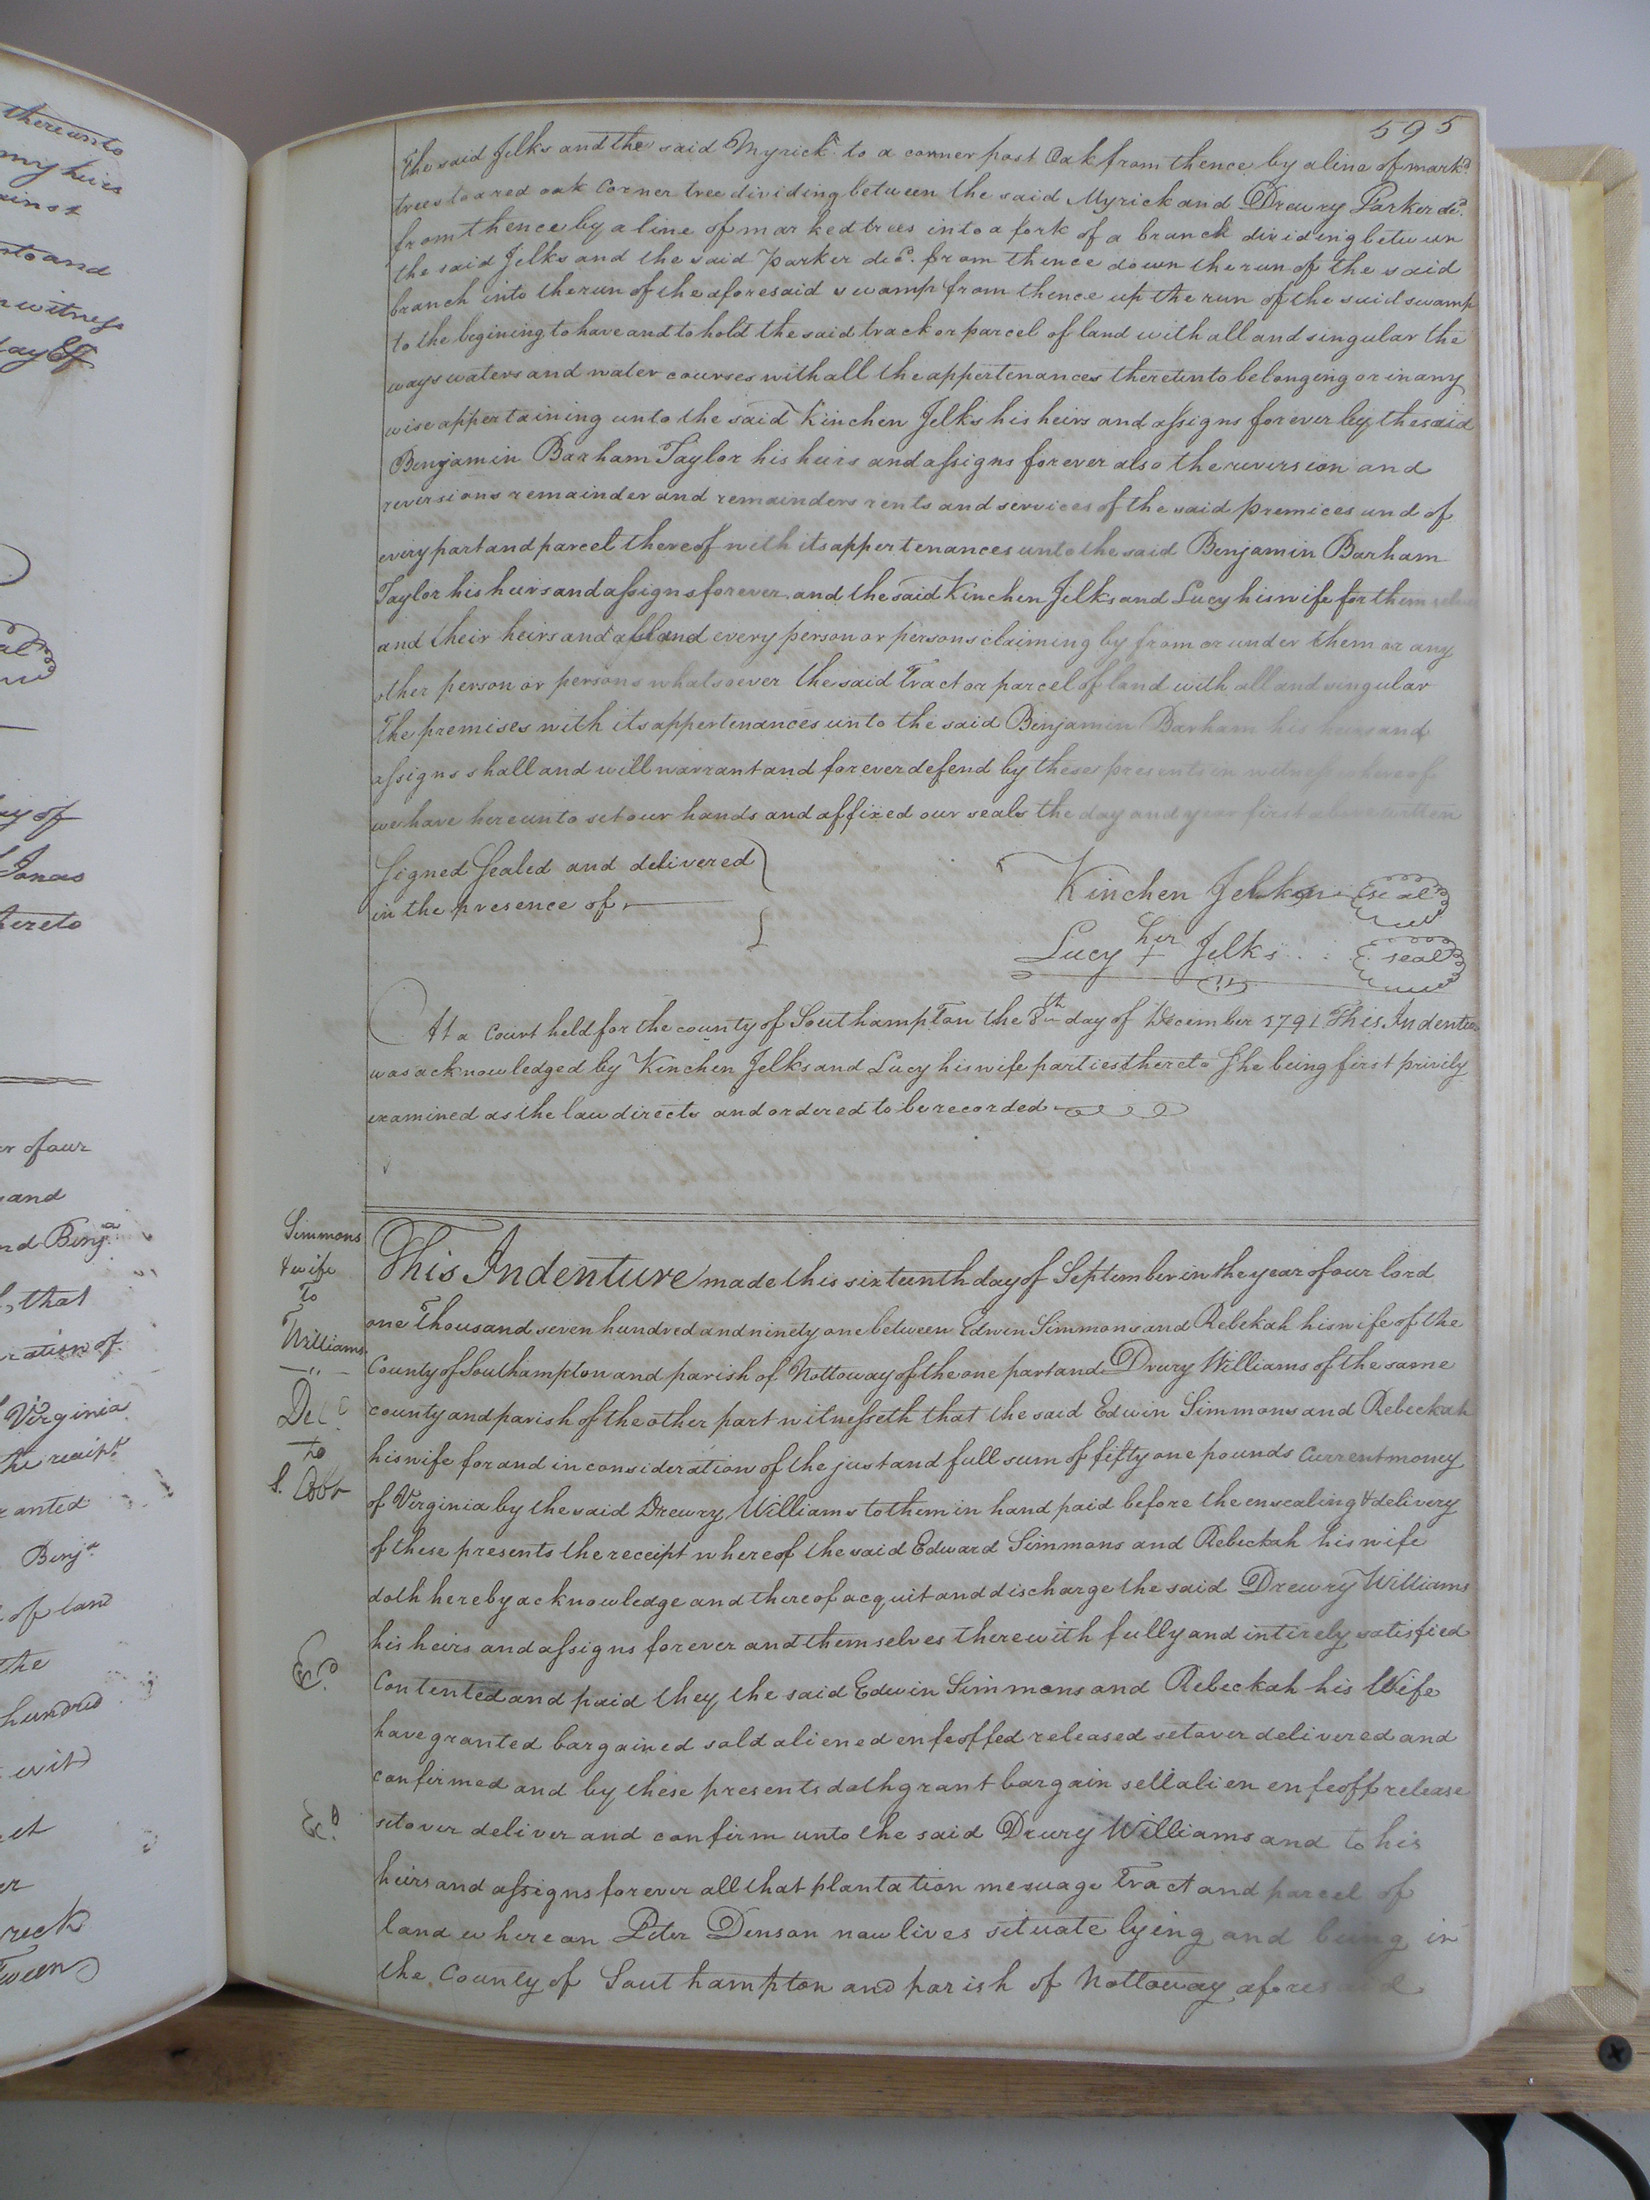 thereunto
my heirs
ainst
nto and
n witness
day &
y of
Jonas
hereto
r of our
and
nd Benj.a
, that
ration of
Virginia
he receipt
ranted
Benj.a
of land
the
hundred
wit
et
er
reek
tween
595
The said Jelks and the said Myrick to a corner post Oak from thence by a line of mark.d
trees to a red oak Corner tree dividing between the said Myrick and Drewry Parker de.d
from thence by a line of marked trees into a fork of a branch dividing between
the said Jelks and the said Parker dec.d from thence down the run of the said
branch into the run of the aforesaid swamp from thence up the run of the said swamp
to the begining to have and to hold the said track or parcel of land with all and singular the
ways waters and water courses with all the appertenances thereunto belonging or in any
wise appertaining unto the said Kinchen Jelks his heirs and assigns forever by the said
Benjamin Barham Taylor his heirs and assigns forever also the reversion and
reversions remainder and remainders rents and services of the said premices and of
every part and parcel thereof with its appertenances unto the said Benjamin Barham
Taylor his heirs and assigns forever and the said Kinchen Jelks and Lucy his wife for themselves
and their heirs and all and every person or persons claiming by from or under them or any
other person or persons whatsoever the said Tract or parcel of land with all and singular
The premises with its appertenances unto the said Benjamin Barham his heirs and
assigns shall and will warrant and forever defend by these presents in witness whereof
we have hereunto set our hands and affixed our seals the day and year first above written
Signed Sealed and delivered
in the presence of
Kinchen Jelks seal
Lucy her + Jelks seal
At a Court held for the county of Southampton the 8th day of December 1791 This Indenture
was acknowledged by Kinchen Jelks and Lucy his wife parties thereto She being first privily
examined as the law directs and ordered to be recorded
Simmons
& wife
To
Williams
Del
to
S.
Ex.d
Ex.d
This Indenture made this sixteenth day of September in the year of our lord
one Thousand seven hundred and ninety one between Edwin Simmons and Rebekah his wife of the
County of Southampton and parish of Nottoway of the one part and Drury Williams of the same
county and parish of the other part witnesseth that the said Edwin Simmons and Rebeckah
his wife for and in consideration of the just and full sum of fifty one pounds Current money
of Virginia by the said Drewry Williams to them in hand paid before the ensealing & delivery
of these presents the receipt whereof the said Edward Simmons and Rebeckah his wife
doth hereby acknowledge and thereof acquit and discharge the said Drewry Williams
his heirs and assigns forever and themselves therewith fully and intirely satisfied
Contented and paid they the said Edwin Simmons and Rebeckah his Wife
have granted bargained sold aliened enfeoffed released set over delivered and
confirmed and by these presents doth grant bargain sell alien enfeoff release
set over deliver and confirm unto the said Drury Williams and to his
heirs and assigns forever all that plantation mesuage Tract and parcel of
land whereon Peter Denson now lives situate lying and being in
the County of Southampton and parish of Nottoway aforesaid